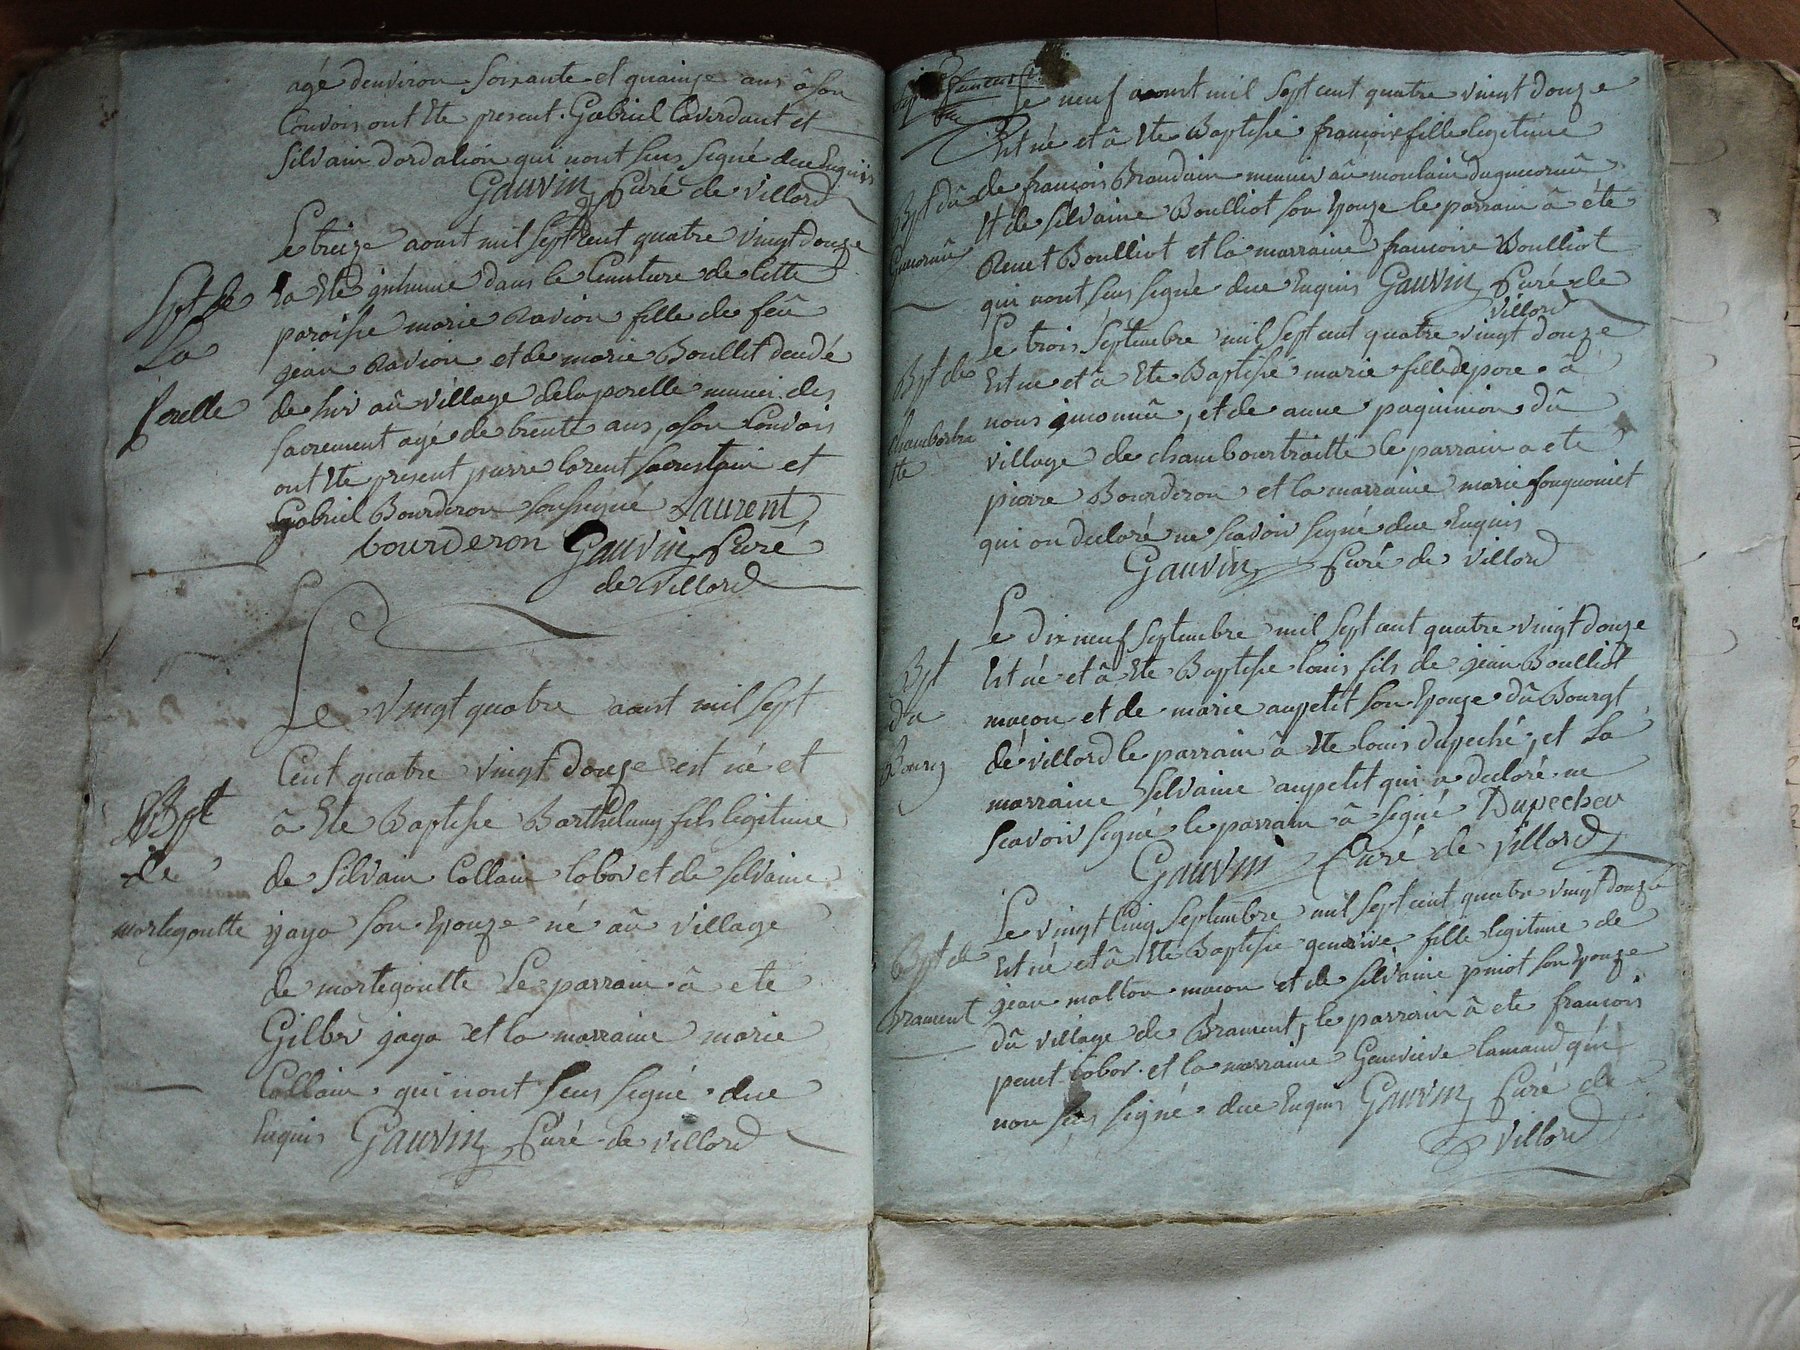 agé denviron soixante et quainze ans â son
Convois ont Ete present. Gabriel Caverdant et
Silvain dardalion qui nont sius signé due Enquis
Gauvin Curé de villard
Le treize aoust mil sept cent quatre vingt douze
a Ete inhumé dans le Cimiture de cette
Spt de
La
porelle
paroisse marie Ravion fille de feû
jean Ravion et de marie Boullet deudé
de hiv aû village delaporelle muni des
sacrement agé de trente ans, â son Convois
ont Ete present pierre lorent sacristain et
Gabriel Bourderon soussigné Laurent
bourderon Gauvin Curé
de villard
Le vingt quatre aoust mil sept
Cent quatre vingt douze est né et
Bpt
de
mortegoutte
â Ete Baptisé Barthelemy fils legitime
de Silvain Collain labor et de silvaine
jaga son Epouze né aû village
de mortegoutte Le parrain â eté
Gilber jaga et la marraine marie
Collain qui nont sius signé due
Enquis Gauvin Curé de villard
Le neuf aoust mil sept cent quatre vingt douze
Est né et â Ete Baptisé françoise fille legitime
Bpt dû
de françois Baudain meunier aû moulain du
et de silvaine Boulliot son Epouze le parrain â eté
Renet Boulliot et la marraine francoise Boulliot
qui nont sius signé due Enquis Gauvin Curé de
villard
Le trois Septembre mil sept cent quatre vingt douze
Bpt de
chambortrai
tte
Est né et â Ete Baptisé marie fille de pere â
nous inconnû, et de anne paquinion dû
village de chambourtraitte le parrain a eté
pierre Bourderon et la marraine marie fouquoniet
qui on declaré ne scavoir signé due Enquis
Gauvin Curé de villard
Le dix neuf septembre mil sept cent quatre vingt douze
Bpt
du
Bourg
Est né et â Ete Baptisé louis fils de jean Boulliot
maçon et de marie aupetit son Epouze dû Bourgt
de villard le parrain â Ete louis dupeché, et La
marraine silvaine aupetit qui a declaré ne
scavoir signé le parrain â signé Dupecher
Gauvin Curé de villard
Le vingt cinq septembre mil sept cent quatre vingt douze
Bpt de
Brament
Est né et â Ete Baptisé genevive fille legitime de
jean malton macon et de silvaine piniot son Epouze
dû village de Brament, le parrain â ete francois
penet labor et la marraine Genevieve lamaud qui
non sius signé due Enquis Gauvin Curé de
villard